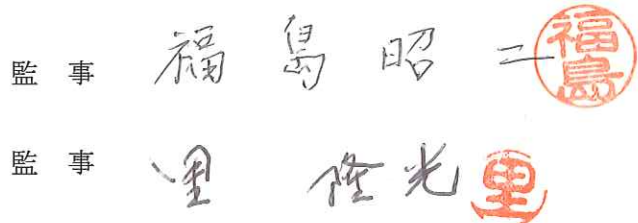 監事 福島昭二 福島
監事 里隆光 里